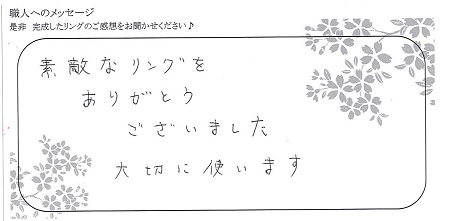 職人へのメッセージ
是非 完成したリングのご感想をお聞かせください♪
素敵なリングを
ありがとう
ございました
大切に使います